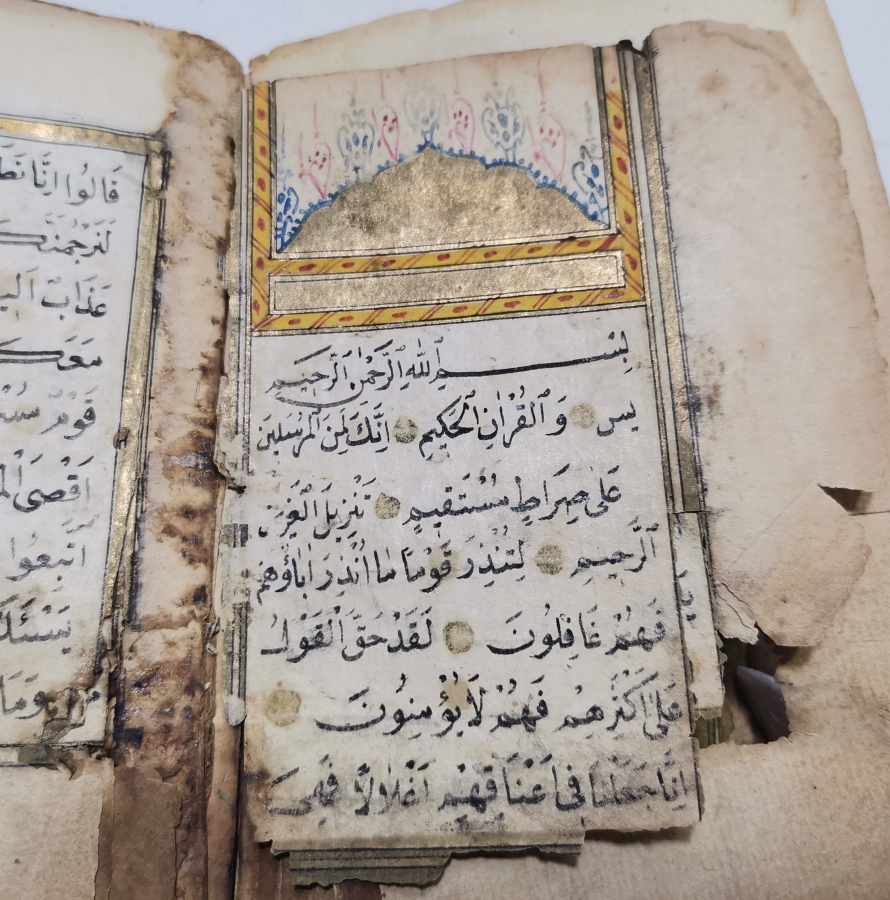 بِسْمِ اللّٰهِ الرَّحْمٰنِ الرَّحِيمِ
يس وَالْقُرْاٰنِ الْحَكِيمِ اِنَّكَ لَمِنَ الْمُرْسَلِينَ
عَلٰى صِرَاطٍ مُسْتَقِيمٍ تَنْزِيلَ الْعَزِيزِ
الرَّحِيمِ لِتُنْذِرَ قَوْمًا مَا اُنْذِرَ اٰبَاؤُهُمْ
فَهُمْ غَافِلُونَ لَقَدْ حَقَّ الْقَوْلُ
عَلٰى اَكْثَرِهِمْ فَهُمْ لَا يُؤْمِنُونَ
اِنَّا جَعَلْنَا فِى اَعْنَاقِهِمْ اَغْلَالًا فَهِىَ
قَالُوا اِنَّا
عَذَابٌ
قَوْمٌ
اَقْصَى
اتَّبِعُوا
وَمَا